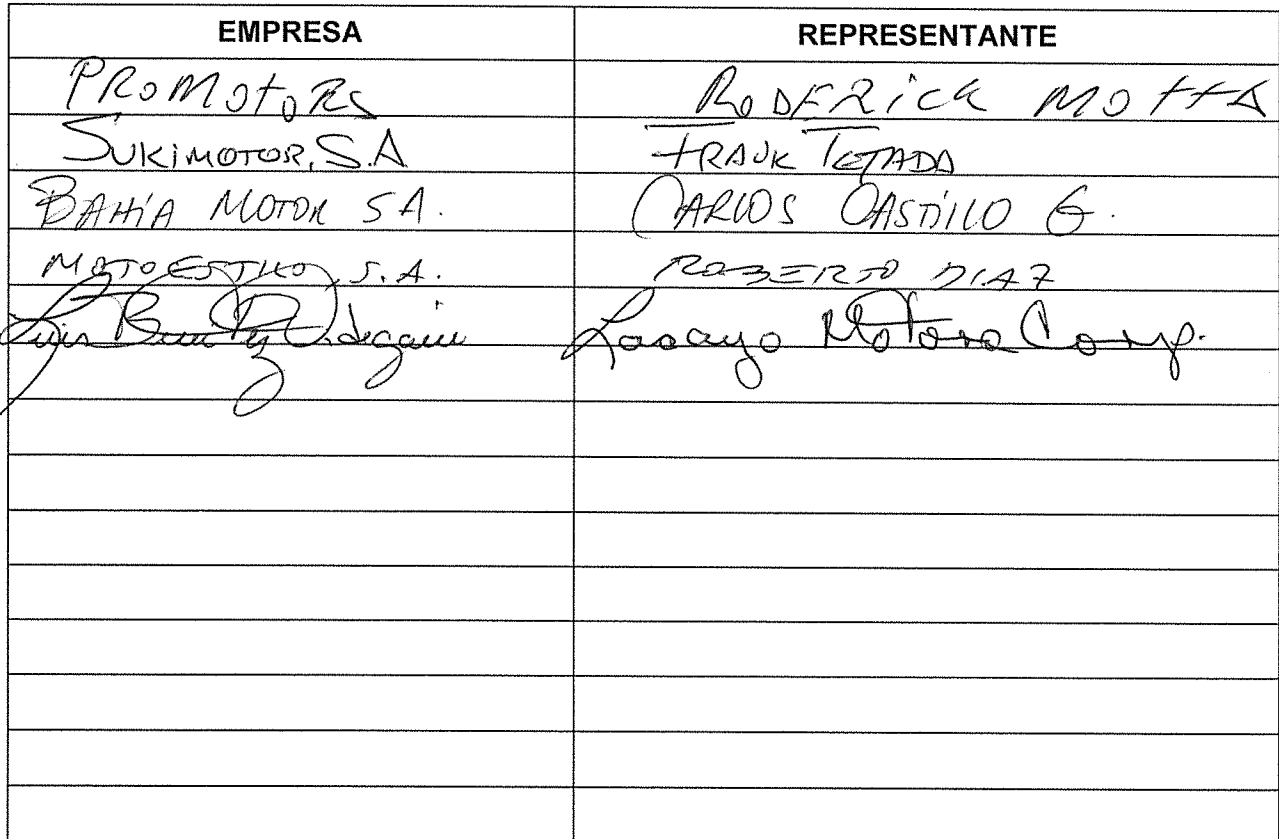 EMPRESA REPRESENTANTE
PROMOTORS RODERICK MOTTA
SUKIMOTOR, S.A FRANK TEJADA
BAHÍA MOTOR SA. CARLOS CASTILLO G.
MOTOESTILO, S.A. ROBERTO DIAZ
Luis Motors Corp.